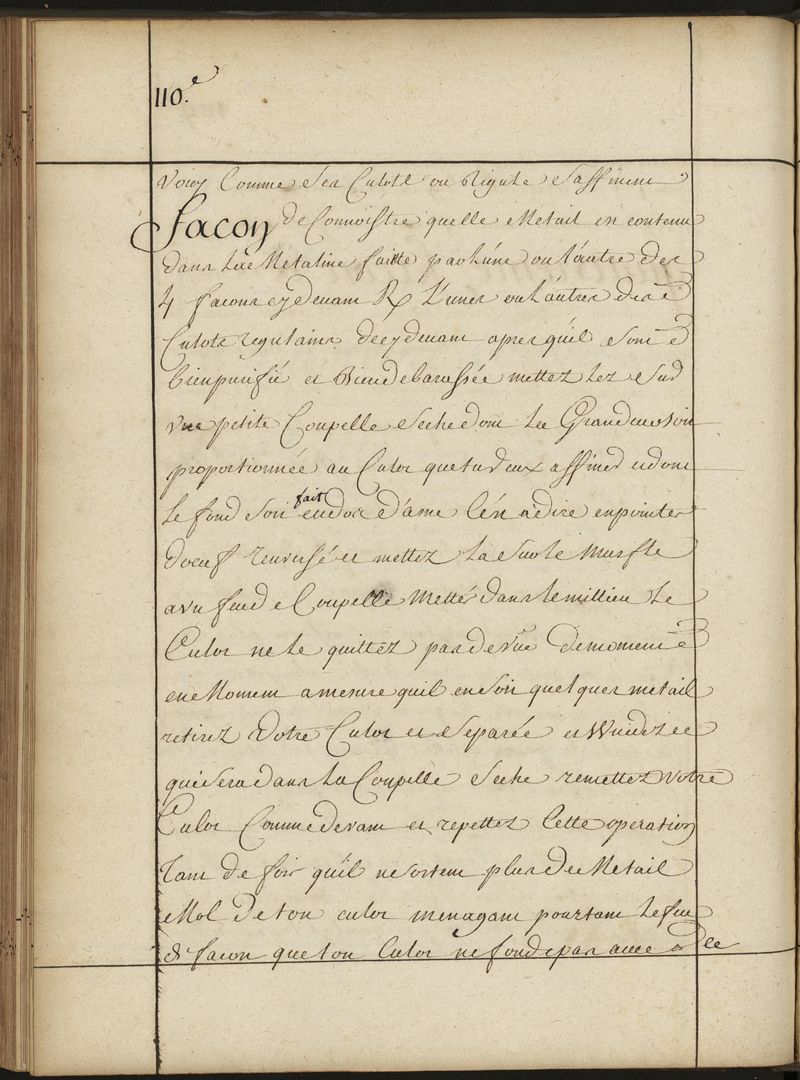 110.e
Voicy Comme Les Culots ou Rigule s'affinent
Facon de Connoistre quelle Metail est contenu
dans La Metaline faitte par L'une ou L'autre des
4 facons cy devant R L'unes ou L'autres des
Culots regulains de cy devant apres qu'il sont
bien purifié et Bien debarassée mettez Les Sud
Une petite Coupelle Seche dont La Grandeur soit
proportionnée au Culot que tu veux affiner et dont
Le fond soit fait en dos d'ame C'est a dire en pointe
d'oeuf renversé et mettez La Sous Le Muffle
a un feu de Coupelle Mettés dans Le millieu Le
Culot ne Le quittez pas de vuë de moment
en Moment a mesure quil en soit quelques metail
retirez Votre Culot et Separée et Wuidez ce
qui sera dans La Coupelle Seche remettez Votre
Culot Comme devant et repettez Cette operation
Tant de fois qu'il ne sortent plus de Metail
Mol De ton culot menagant pourtant Le feu
de facon que ton Culot ne fonde pas avec Le